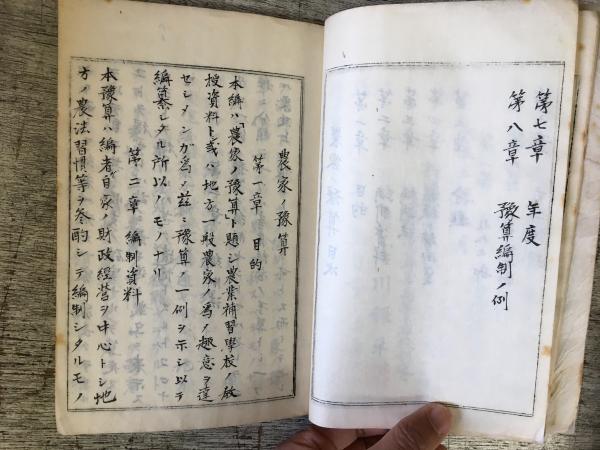 第七章 年度
第八章 豫算編制ノ例
農家ノ豫算
第一章 目的
本編ハ「農家ノ豫算」ト題シ農業補習學校ノ教
授資料ト或ハ地方一般農家ノ為ノ趣意ヲ達
セシメンガ為メ茲ニ豫算ノ一例ヲ示シ以テ
編纂シタル所以ノモノナリ
第二章 編制資料
本豫算ハ編者自家ノ財政経営ヲ中心トシ地
方ノ農法習慣等ヲ参酌シテ編制シタルモノ